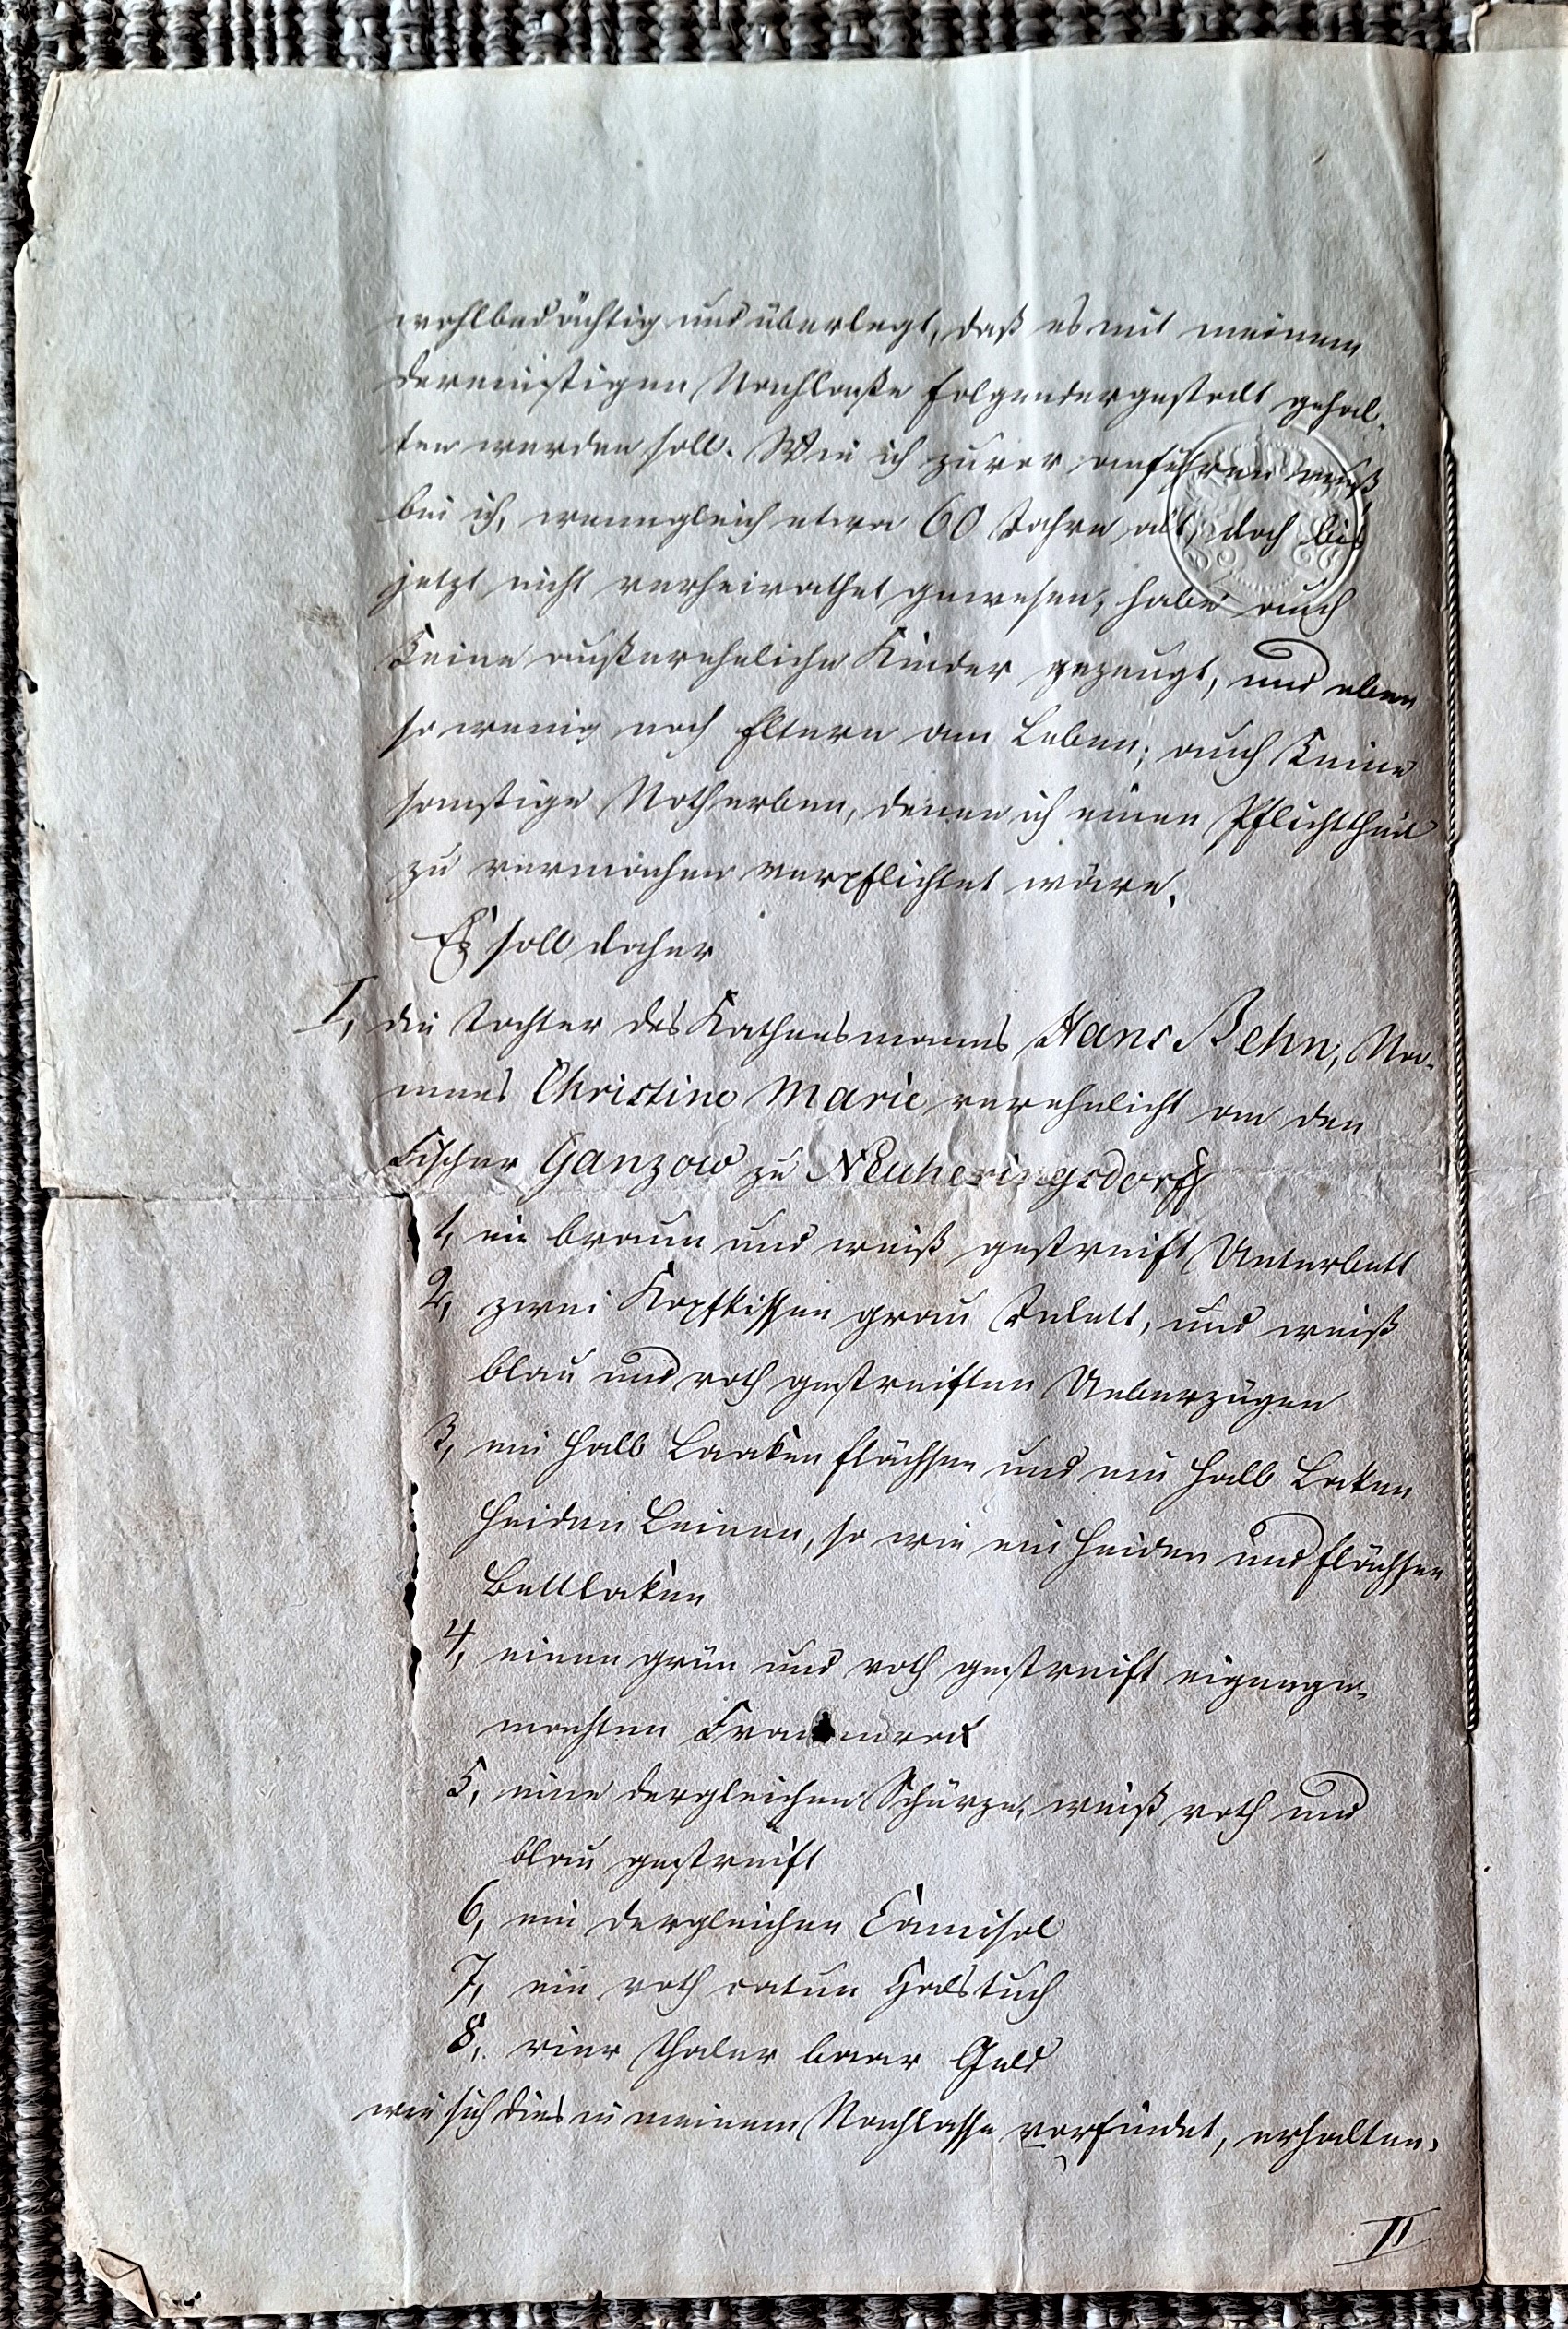 wohlbedächtig und überlegt, daß es mit meinem
dereinstigen Nachlaße folgendergestalt gehal-
ten werden soll. Wie ich zuvor anführen muß,
bin ich, wenngleich etwa 60 Jahre alt, doch bis
jetzt nicht verheirathet gewesen, habe auch
keine außereheliche Kinder gezeugt, und eben
so wenig noch Eltern am Leben; auch keine
sonstige Notherben, denen ich einen Pflichttheil
zu vermachen verpflichtet wäre.
Es soll daher
I, die Tochter des Kathensmanns Hans Behn, Na-
mens Christine Marie verehelicht an den
Fischer Ganzow zu Neuheringsdorff
1, ein braun und weiß gestreift Unterbett
2, zwei Kopfkissen grau Inlett, und weiß
blau und roth gestreiften Ueberzügen
3, ein halb Laaken flächsen und ein halb Laken
heiden Leinen, so wie ein heiden und flächsen
Bettlaken
4, einen grün und roth gestreift eigenge-
machten Frauenrock
5, eine dergleichen Schürze, weiß roth und
blau gestreift
6, ein dergleichen Camisol
7, ein roth catun Halstuch
8, vier Thaler baar Geld
wie sich dies in meinem Nachlasse vorfindet, erhalten.
II